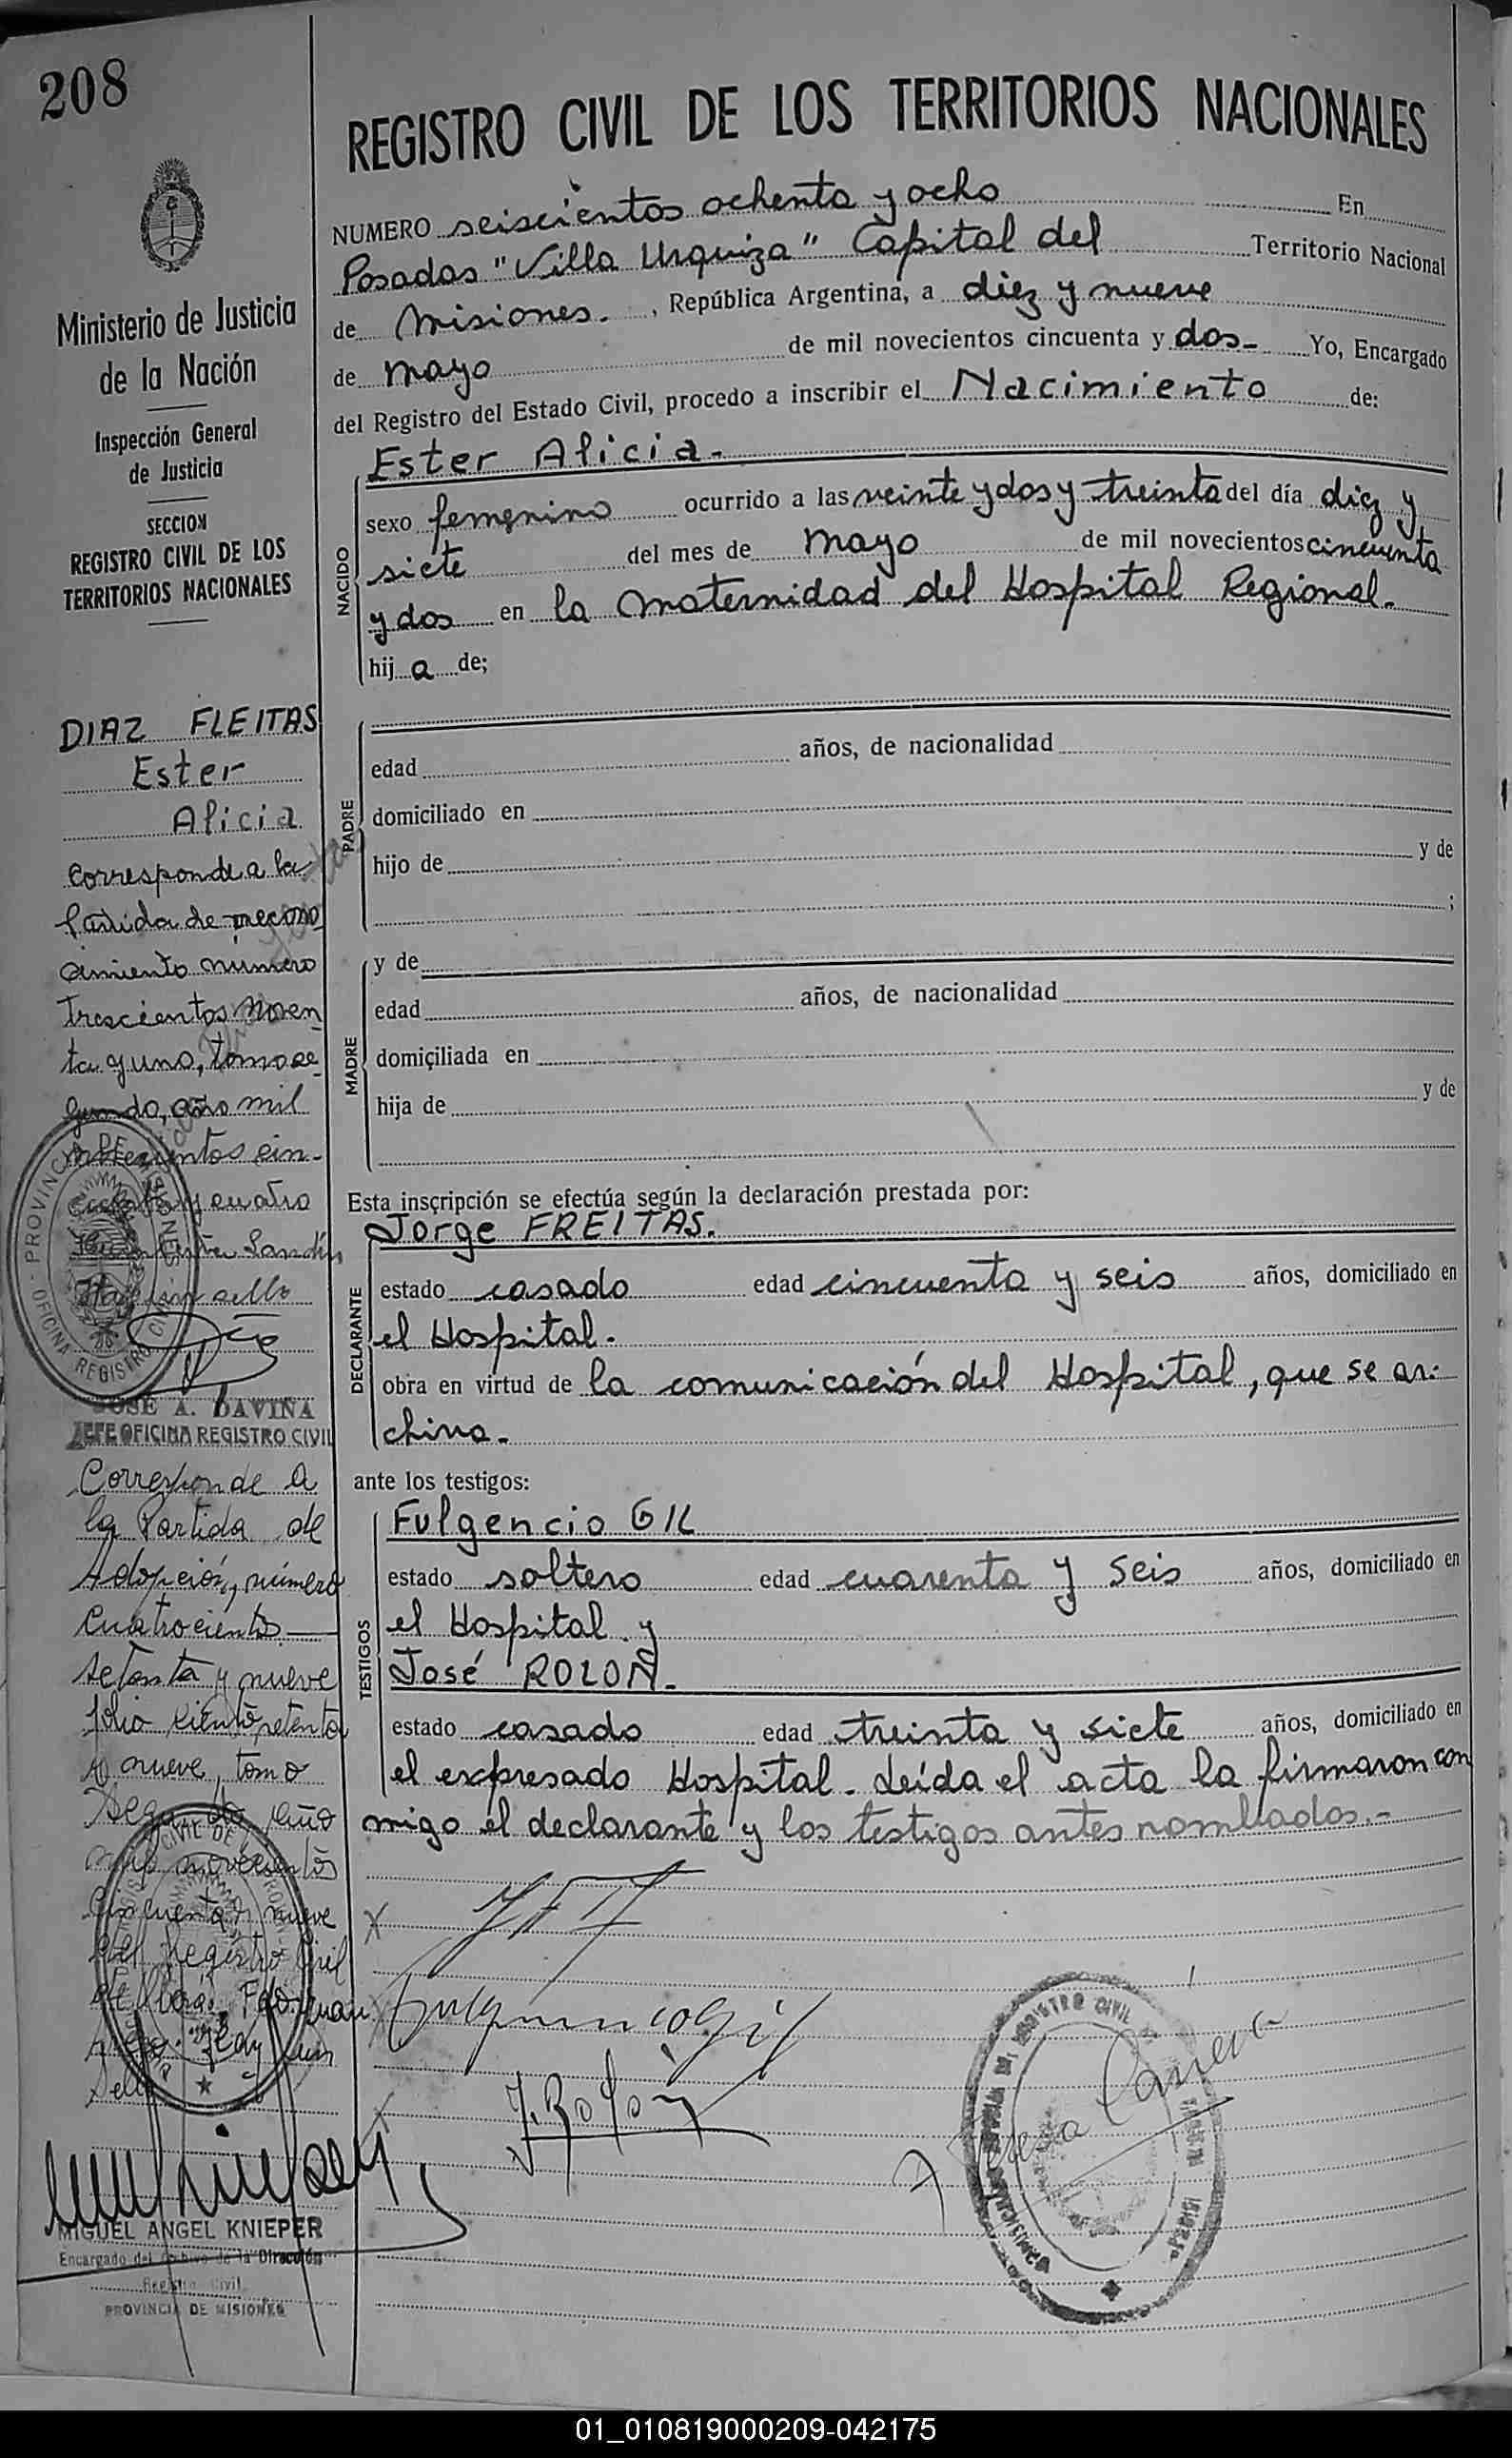 208
Ministerio de Justicia
de la Nación
Inspección General
de Justicia
SECCION
REGISTRO CIVIL DE LOS
TERRITORIOS NACIONALES
DIAZ FLEITAS
Ester
Alicia
Corresponde a la
partida de recono
cimiento número
trescientos noven
ta y uno, tomo se
gundo, año mil
novecientos cin-
cuenta y cuatro
Hay un sello
JOSE A. DAVIÑA
JEFE OFICINA REGISTRO CIVIL
Corresponde a
la Partida de
Adopción, número
cuatrocientos
setenta y nueve
folio ciento setenta
y nueve, tomo
segundo, año
mil novecientos
cincuenta y nueve
del Registro Civil
Hay un
sello
MIGUEL ANGEL KNIEPER
Encargado del Archivo de la Dirección
Registro Civil
PROVINCIA DE MISIONES
REGISTRO CIVIL DE LOS TERRITORIOS NACIONALES
NUMERO seiscientos ochenta y ocho En
Posadas "Villa Urquiza" Capital del Territorio Nacional
de Misiones. , República Argentina, a diez y nueve
de mayo de mil novecientos cincuenta y dos- Yo, Encargado
del Registro del Estado Civil, procedo a inscribir el Nacimiento de:
NACIDO
Ester Alicia.
sexo femenino ocurrido a las veinte y dos y treinta del día diez y
siete del mes de mayo de mil novecientos cincuenta
y dos en la Maternidad del Hospital Regional.
hij a de;
PADRE
edad años, de nacionalidad
domiciliado en
hijo de y de
;
MADRE
y de
edad años, de nacionalidad
domiciliada en
hija de y de
Esta inscripción se efectúa según la declaración prestada por:
DECLARANTE
Jorge FREITAS.
estado casado edad cincuenta y seis años, domiciliado en
el Hospital.
obra en virtud de la comunicación del Hospital, que se ar-
chiva.
ante los testigos:
TESTIGOS
Fulgencio GIL
estado soltero edad cuarenta y seis años, domiciliado en
el Hospital y
José ROLON.
estado casado edad treinta y siete años, domiciliado en
el expresado Hospital. Leída el acta la firmaron con
migo el declarante y los testigos antes nombrados.-
X
Fulgencio Gil
J. Rolón
PROVINCIA DE MISIONES
OFICINA REGISTRO CIVIL
01_010819000209-042175